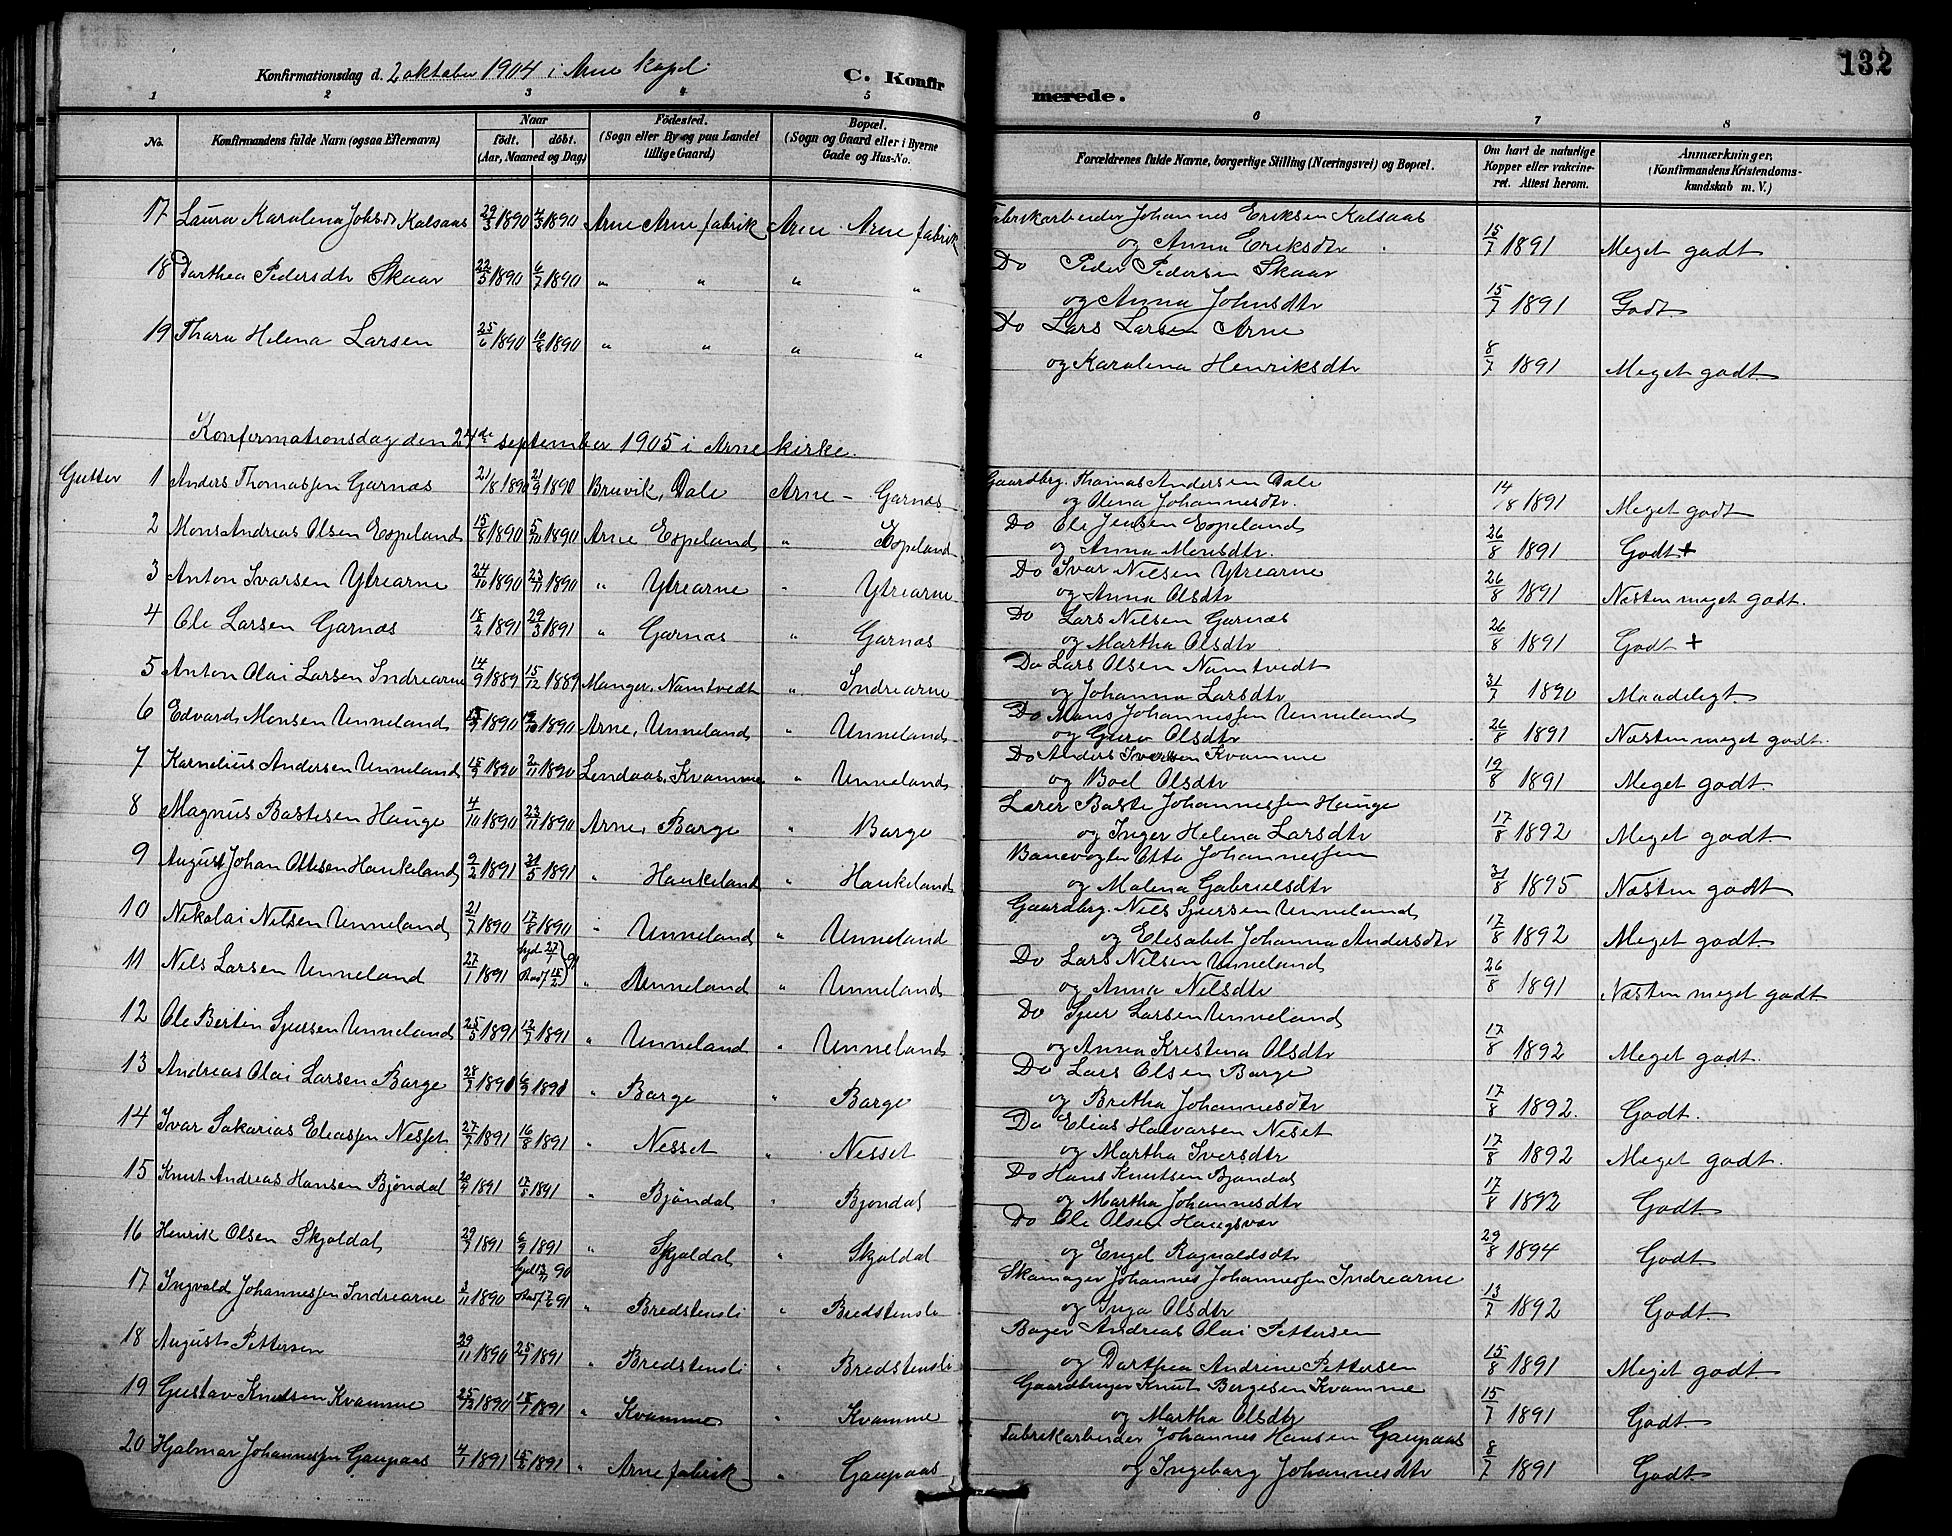 132
Konfirmationsdag d. 2 oktober 1904 i Arne kapel.
C. Konfirmerede.
1 2 3 4 5 6 7 8
No. Konfirmandens fulde Navn (ogsaa Efternavn) Naar født. døbt. (Aar, Maaned og Dag) Fødested. (Sogn eller By og paa Landet tillige Gaard) Bopæl. (Sogn og Gaard eller i Byerne Gade og Hus-No. Forældrenes fulde Navne, borgerlige Stilling (Næringsvei) og Bopæl. Om havt de naturlige Kopper eller vakcineret. Attest herom. Anmærkninger. (Konfirmandens Kristendomskundskab m. V.)
17 Laura Karolena Johsdr Kalsaas 29/3 1890 1890 Arne Arne fabrik Arne - Arne fabrik Fabrikarbeider Johannes Eriksen Kalsaas
og Anna Eriksdtr 15/7 1891 Meget godt
18 Dorthea Pedersdtr Skaar 22/5 1890 6/7 1890 " " " " Do Peder Pedersen Skaar
og Anna Johnsdtr 15/7 1891 Godt
19 Thora Helena Larsen 25/6 1890 10/8 1890 " " " " Do Lars Larsen Arne
og Karolena Henriksdtr 8/7 1891 Meget godt
Konfirmationsdag den 24de september 1905 i Arne kirke.
Gutter 1 Anders Thomassen Garnæs 21/8 1890 21/9 1890 Bruvik, Dale Arne - Garnæs Gaardbrg. Thomas Andersen Dale
og Olena Johannesdtr. 14/8 1891 Meget godt
2 Mons Andreas Olsen Espeland 15/8 1890 5/10 1890 Arne Espeland " Espeland Do Ole Jensen Espeland
og Anna Monsdtr. 26/8 1891 Godt +
3 Anton Ivarsen Ytrearne 24/10 1890 23/11 1890 " Ytrearne " Ytrearne Do Ivar Nilsen Ytrearne
og Anna Olsdtr 26/8 1891 Næsten meget godt.
4 Ole Larsen Garnæs 18/2 1891 29/3 1891 " Garnæs " Garnæs Do Lars Nilsen Garnæs
og Martha Olsdtr 26/8 1891 Godt +
5 Anton Olai Larsen Indrearne 14/9 1889 15/12 1889 Manger, Namtvedt " Indrearne Do Lars Olsen Namtvedt
og Johanna Larsdtr 31/7 1890 Maadeligt.
6 Edvard Monsen Unneland 1890 1890 Arne, Unneland " Unneland Do Mons Johannessen Unneland
og Guro Olsdtr 26/8 1891 Næsten meget godt.
7 Kornelius Andersen Unneland 15/9 1890 2/11 1890 Lindaas, Kvamme " Unneland Do Anders Iversen Kvamme
og Boel Olsdtr 19/8 1891 Meget godt.
8 Magnus Bastesen Hauge 4/10 1890 23/11 1890 Arne, Borge " Borge Lærer Baste Johannessen Hauge
og Inger Helena Larsdtr 17/8 1892 Meget godt.
9 August Johan Ottesen Haukeland 9/2 1891 31/5 1891 " Haukeland " Haukeland Banevogter Otto Johannessen
og Malena Gabrielsdtr 31/8 1895 Næsten godt
10 Nikolai Nilsen Unneland 21/7 1890 17/8 1890 " Unneland " Unneland Gaardbrg. Niels Sjursen Unneland
og Elisabet Johanna Andersdtr 17/8 1892 Meget godt
11 Nils Larsen Unneland 27/1 1891 hjd 27/1 Stadf 15/2 91 " Unneland " Unneland Do Lars Nilsen Unneland
og Anna Nilsdtr 26/8 1891 Næsten meget godt
12 Ole Bertin Sjursen Unneland 25/5 1891 12/7 1891 " Unneland " Unneland Do Sjur Larsen Unneland
og Anna Kristena Olsdtr 17/8 1892 Meget godt.
13 Andreas Olai Larsen Borge 28/7 1890 6/9 1890 " Borge " Borge Do Lars Olsen Borge
og Bretha Johannesdtr 17/8 1892. Godt.
14 Ivar Sakarias Eliassen Nesset 27/7 1891 16/8 1891 " Nesset " Nesset Do Elias Halvarsen Neset
og Martha Iversdtr 17/8 1892 Meget godt.
15 Knut Andreas Hansen Bjøndal 1891 17/5 1891 " Bjøndal " Bjondal Do Hans Knutsen Bjøndal
og Martha Johannesdtr 17/8 1892 Godt.
16 Henrik Olsen Skjoldal 29/7 1891 6/9 1891 " Skjoldal " Skjoldal Do Ole Olsen Haugsvær
og Engel Ragnaldsdtr 29/8 1894 Godt
17 Ingvald Johannessen Indrearne 3/11 1890 hjd 90 Stadf 7/6 91 " Bredstensli " Bredstensli Skomager Johannes Johannessen Indrearne
og Inga Olsdtr 13/7 1892 Godt.
18 August Pettersen 29/11 1890 25/7 1891 " Bredstensli " Bredstensli Bager Andreas Olai Pettersen
og Dorthea Andrine Pettersen 15/8 1891 Meget godt
19 Gustav Knudsen Kvamme 25/3 1890 1891 " Kvamme " Kvamme Gaardbruger Knut Børgesen Kvamme
og Martha Olsdtr 15/7 1891 Godt
20 Hjalmar Johannessen Gaupaas 4/1 1891 15/2 1891 " Arne fabrik " Gaupaas Fabrikarbeider Johannes Hansen Gaupaas
og Ingeborg Johannesdtr 8/7 1891 Godt.